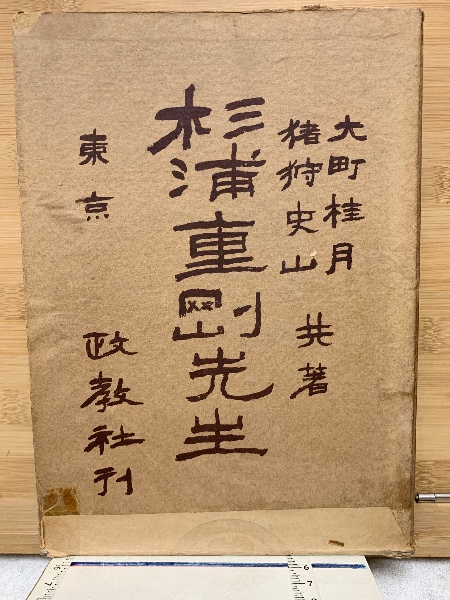 大町桂月
猪狩史山
共著
杉浦重剛先生
東京
政教社刊
6
7